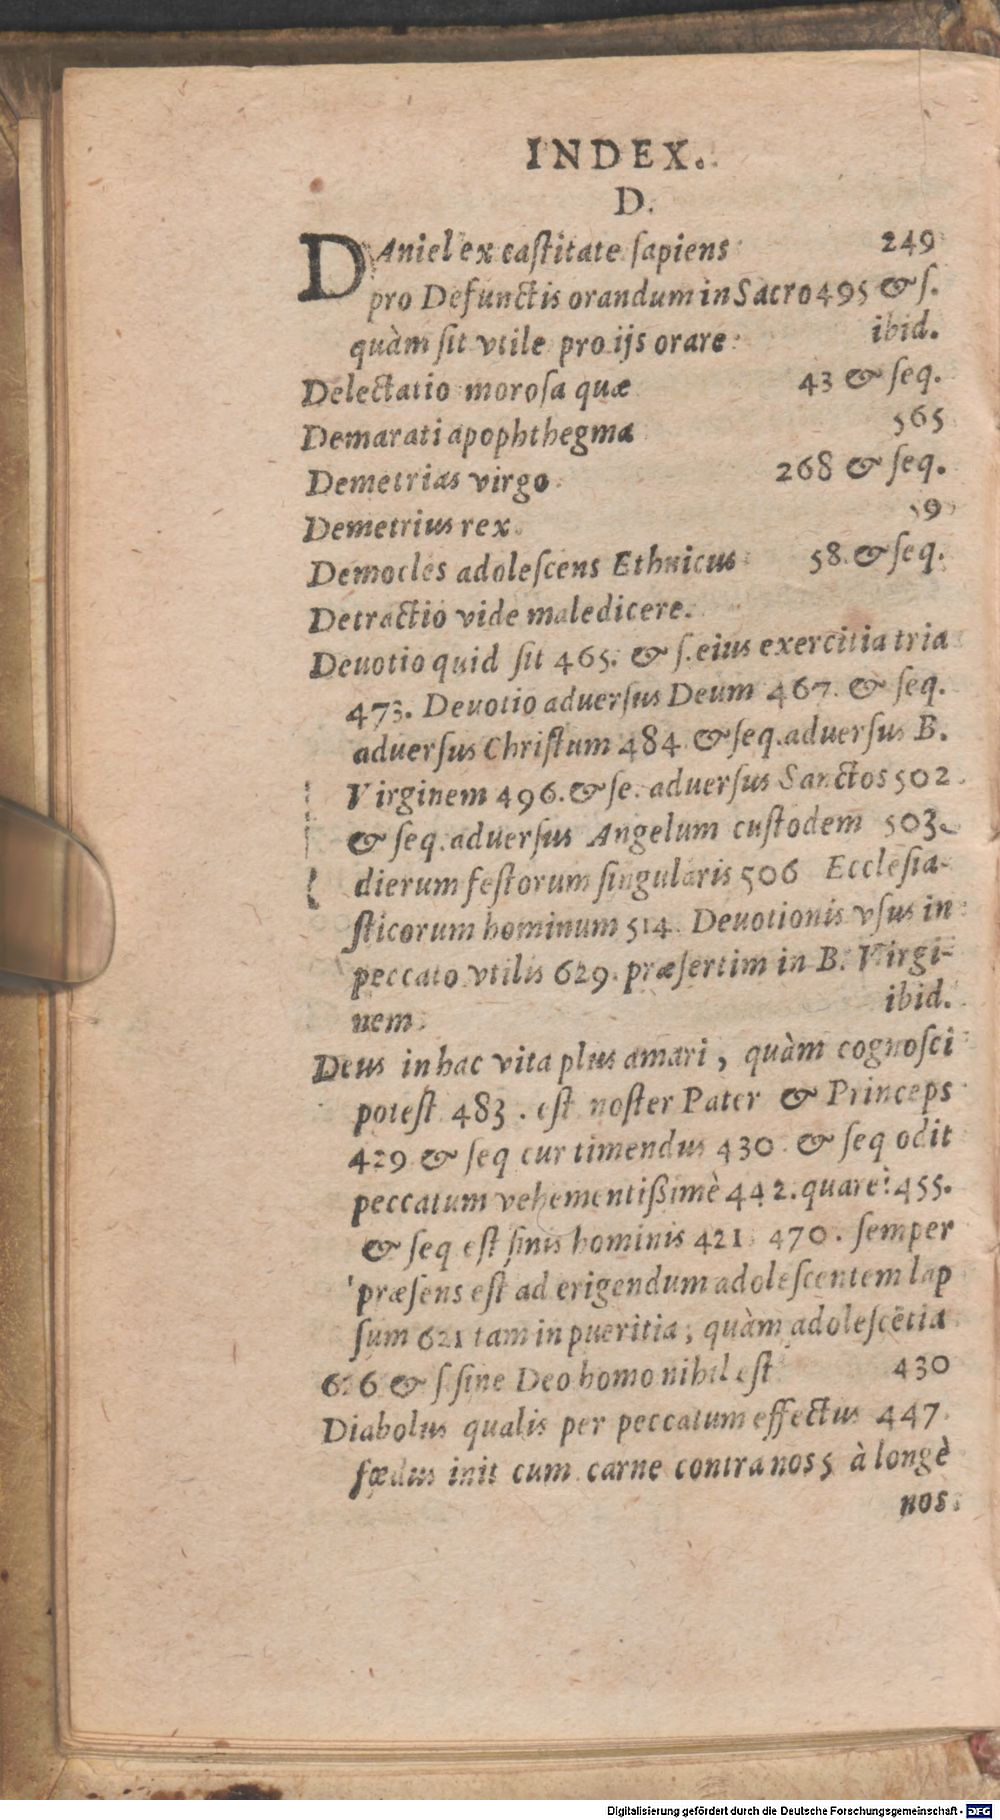 INDEX.
D.
DAniel ex castitate sapiens 249
pro Defunctis orandum in Sacro 495 & s.
quàm sit vtile pro ijs orare ibid.
Delectatio morosa quæ 43 & seq.
Demarati apophthegma 565
Demetrias virgo 268 & seq.
Demetrius rex.
Democles adolescens Ethnicus 58. & seq.
Detractio vide maledicere.
Deuotio quid sit 465. & s. eius exercitia tria
473. Deuotio aduersus Deum 467. & seq.
aduersus Christum 484 & seq. aduersus B.
Virginem 496. & se. aduersus Sanctos 502
& seq. aduersus Angelum custodem 503.
dierum festorum singularis 506 Ecclesia-
sticorum hominum 514. Deuotionis vsus in
peccato vtilis 629. præsertim in B. Virgi-
nem. ibid.
Deus in hac vita plus amari, quàm cognosci
potest 483. est noster Pater & Princeps
429 & seq cur timendus 430. & seq odit
peccatum vehementißimè 442. quare? 455.
& seq est finis hominis 421 470. semper
præsens est ad erigendum adolescentem lap
sum 621 tam in pueritia, quàm adolescẽtia
& s. sine Deo homo nihil est 430
Diabolus qualis per peccatum effectus 447.
fœdus init cum carne contra nos 5 à longè
nos.
Digitalisierung gefördert durch die Deutsche Forschungsgemeinschaft - DFG